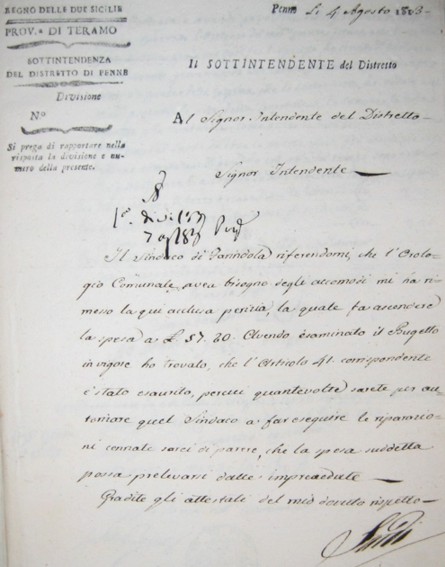 REGNO DELLE DUE SICILIE
PROV.ª DI TERAMO
SOTTINTENDENZA
DEL DISTRETTO DI PENNE
Divisione
N°
Si prega di rapportare nella
risposta la divisione e nu-
mero della presente.
Penne Li 4 Agosto
Il SOTTINTENDENTE del Distretto
Al Signor Intendente del Distretto
Signor Intendente
Il Sindaco di riferendomi, che l'Orolo-
gio Comunale avea bisogno degli accomodi mi ha ri-
messo la qui acclusa perizia, la quale fa ascendere
la spesa a 57. 80. Avendo esaminato il Bugetto
in vigore ho trovato, che l'Articolo 41. corrispondente
è stato esaurito, percui quantevolte sarete per au-
torizzare quel Sindaco a far eseguire le riparazio-
ni cennate sarei di parere, che la spesa suddetta
possa prelevarsi dalle imprevedute
Gradite gli attestati del mio dovuto rispetto